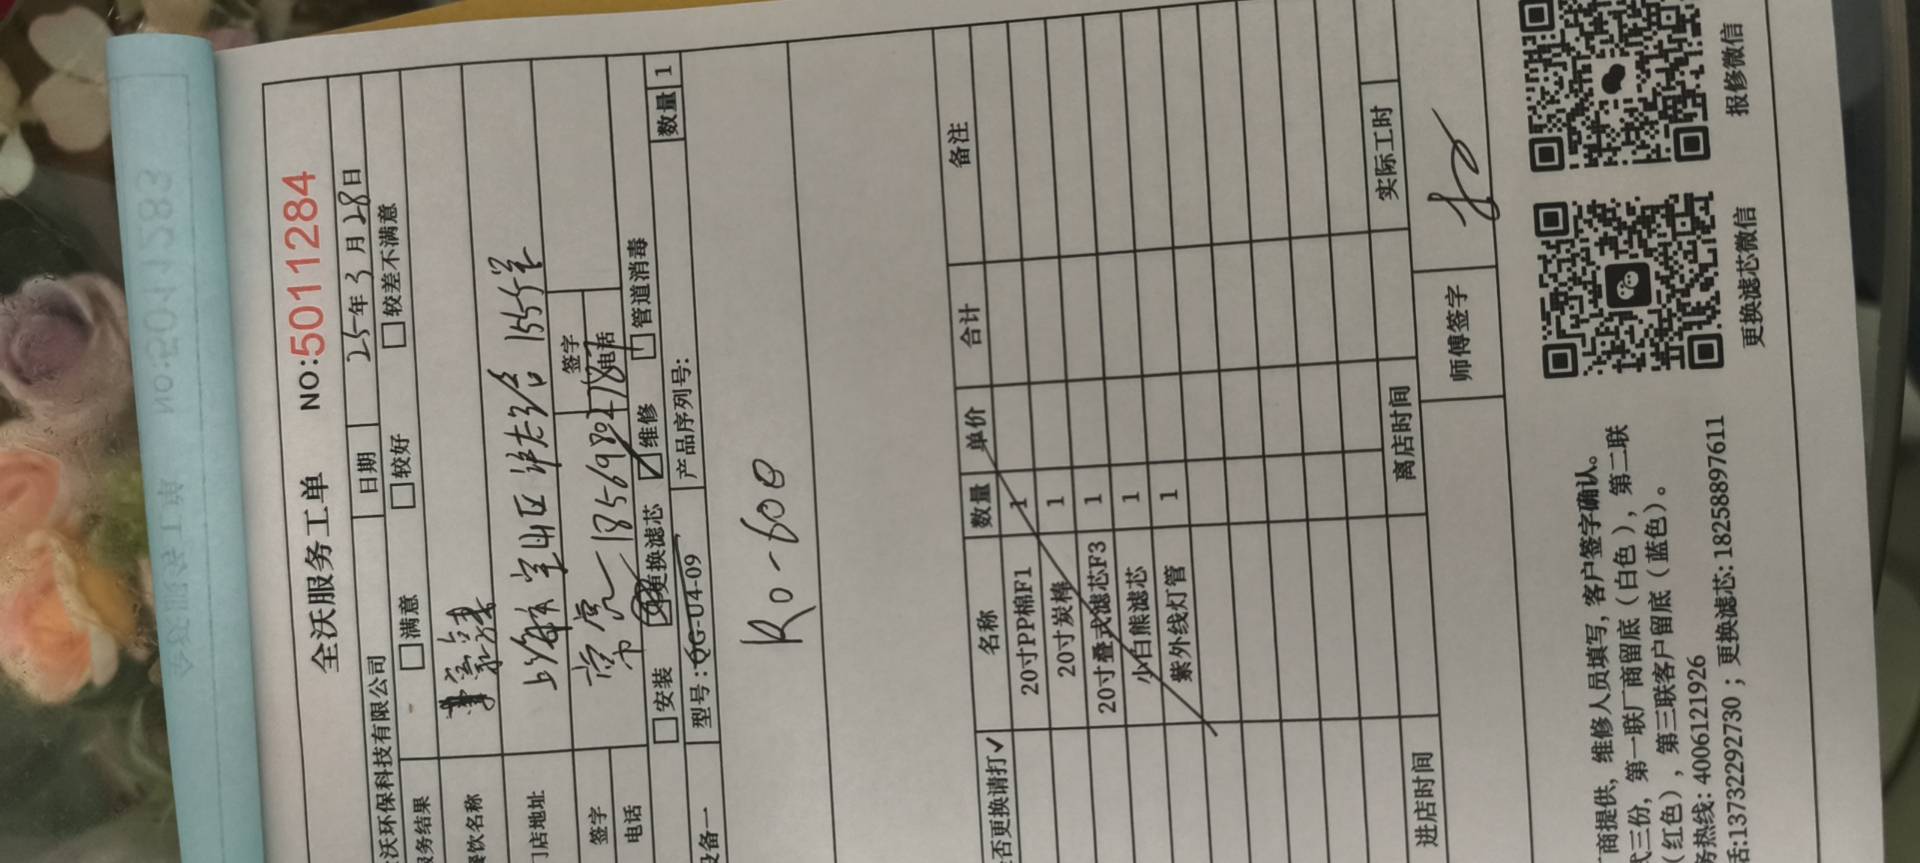 全沃服务工单 NO:5011284
沃环保科技有限公司 日期 25年3月28日
服务结果 满意 较好 较差不满意
餐饮名称
门店地址 上海市宝山区 1555号
签字 常亮 签字
电话 电话
安装 更换滤芯 维修 管道消毒
设备一 型号:QG-U4-09 产品序列号: 数量 1
Ro-600
是否更换请打✓ 名称 数量 单价 合计 备注
20寸PP棉F1 1
20寸炭棒 1
20寸叠式滤芯F3 1
小白熊滤芯 1
紫外线灯管 1
进店时间 离店时间 实际工时
师傅签字
商提供，维修人员填写，客户签字确认。
式三份，第一联厂商留底（白色），第二联
（红色），第三联客户留底（蓝色）。
务热线: 4006121926
话:13732292730 ; 更换滤芯: 18258897611
更换滤芯微信 报修微信